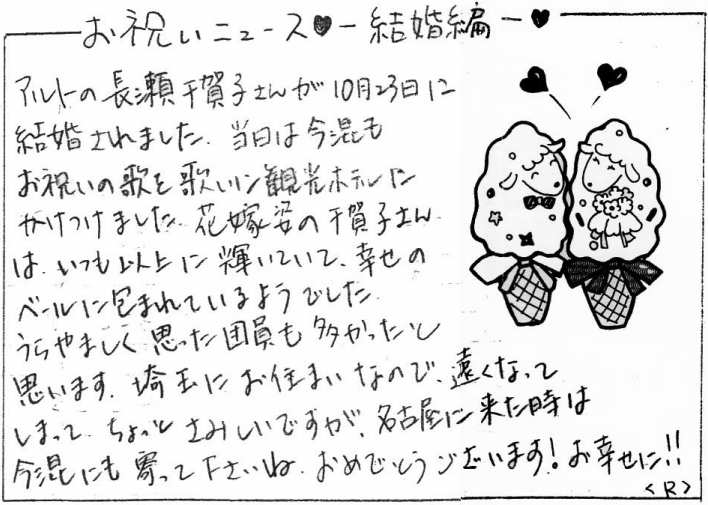 お祝いニュース♥ー結婚編ー♥
アルトの長瀬千賀子さんが10月23日に
結婚されました。当日は今混も
お祝いの歌を歌いに観光ホテルに
かけつけました。花嫁姿の千賀子さん
は、いつも以上に輝いていて、幸せの
ベールに包まれているようでした。
うらやましく思った団員も多かったと
思います。埼玉にお住まいなので、遠くなって
しまって、ちょっとさみしいですが、名古屋に来た時は
今混にも寄って下さいね。おめでとうございます!お幸せに!!
<R>